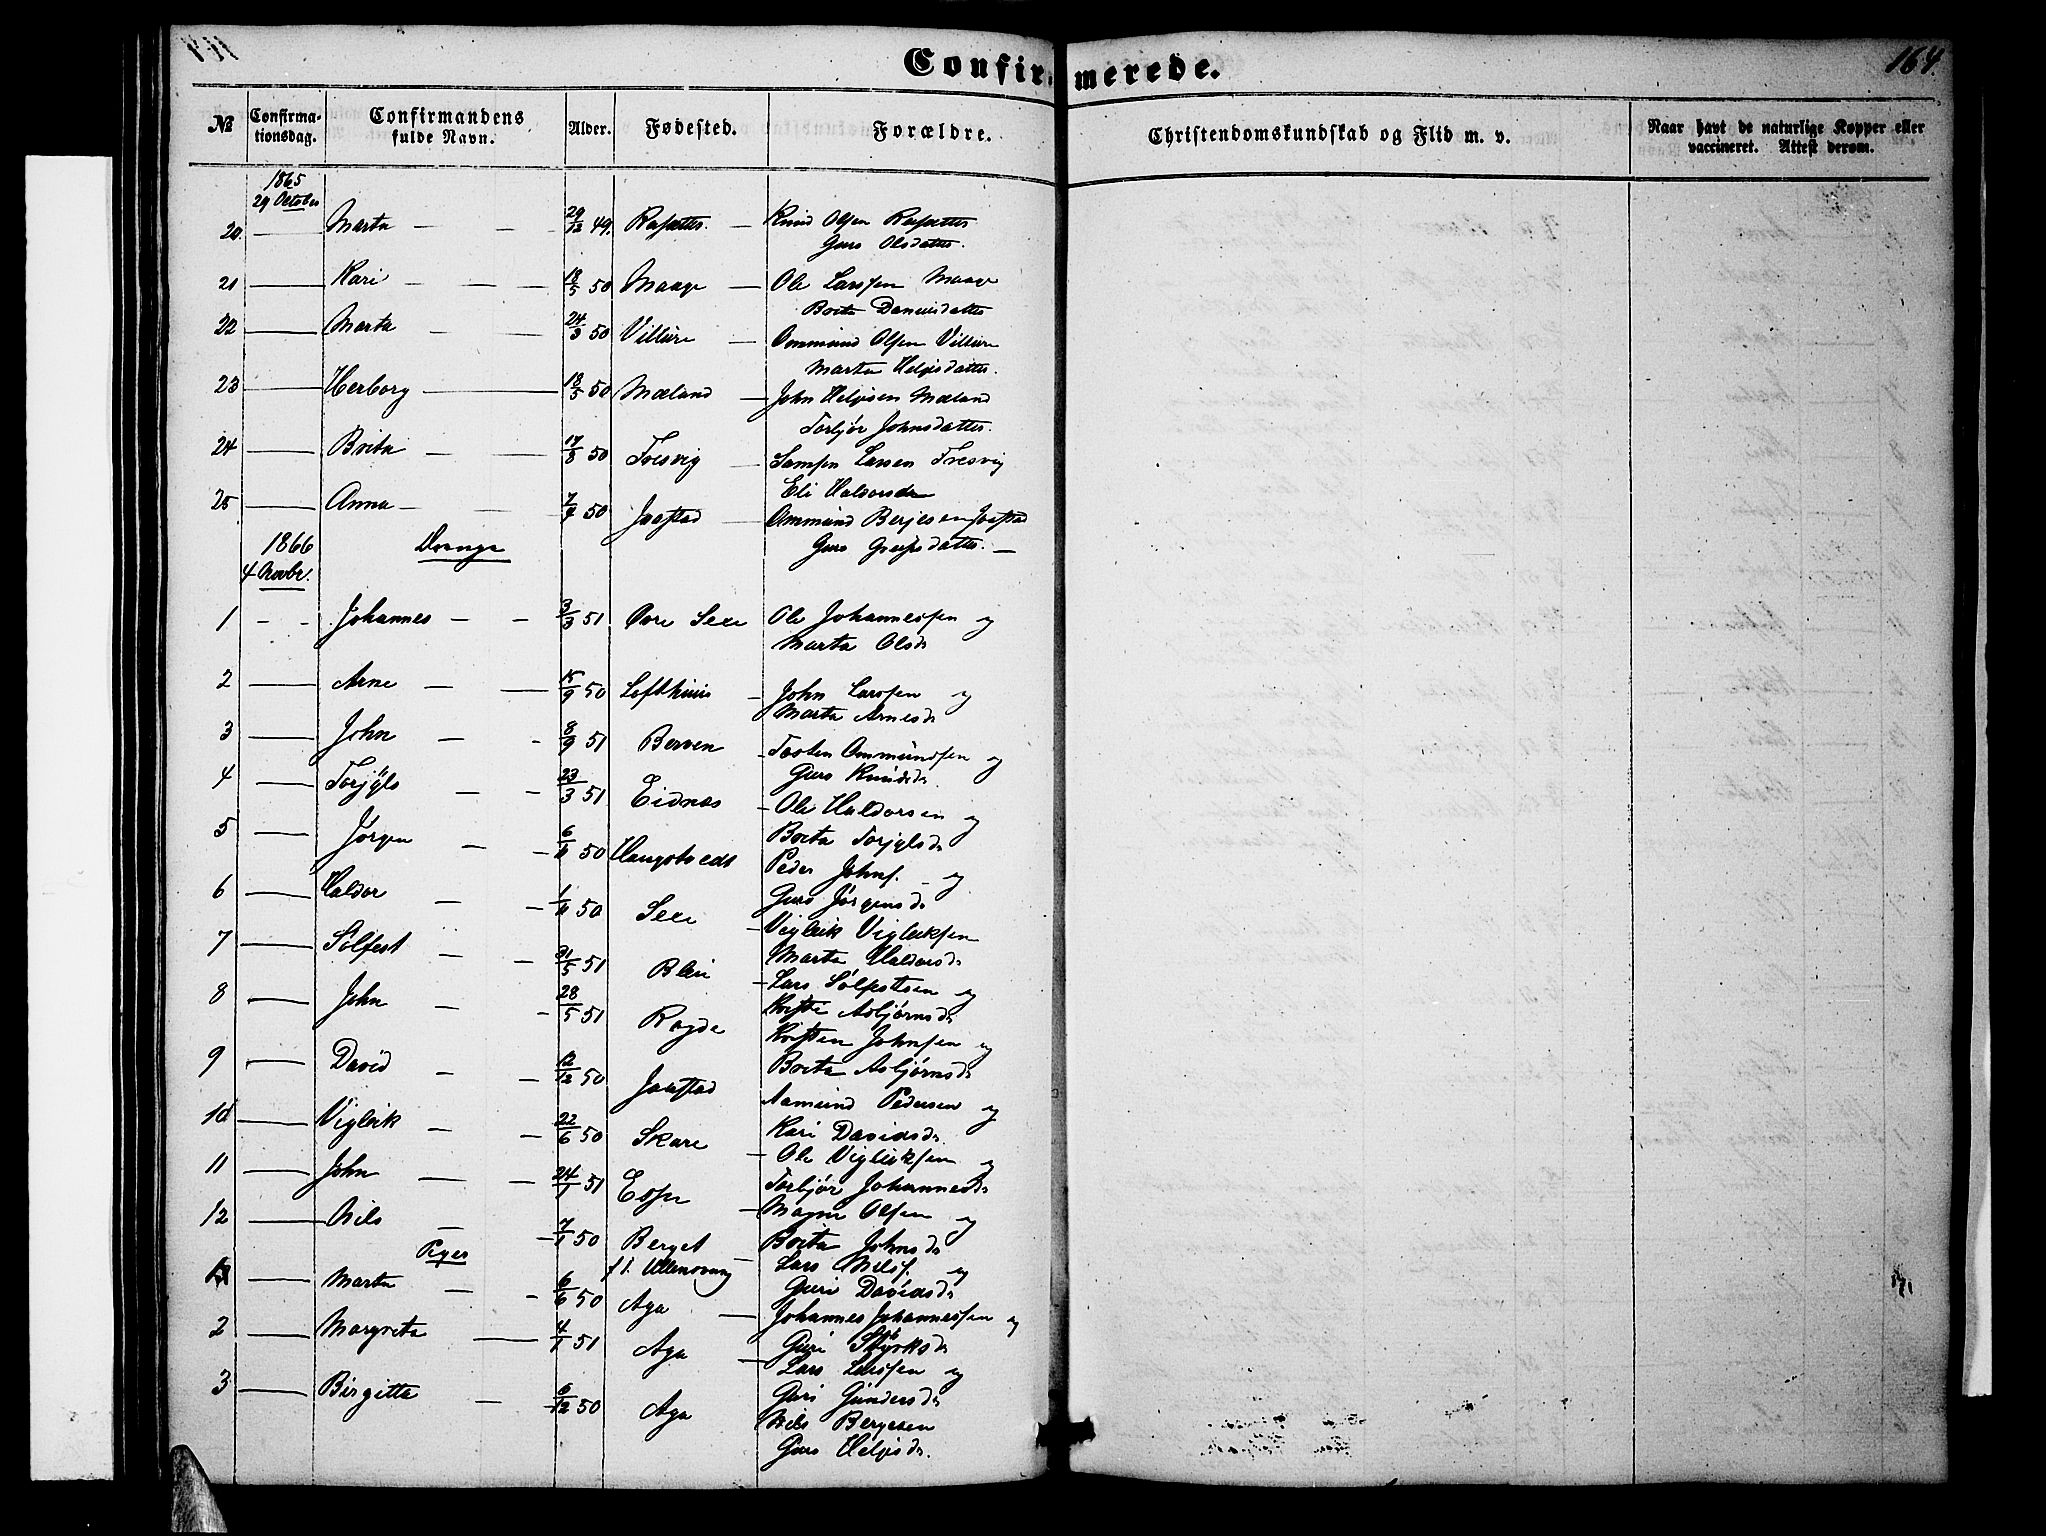 Confirmerede.
164.
№ Confirma-tionsdag. Confirmandens fulde Navn. Alder. Fødested. Forældre. Christendomskundskab og Flid m. v. Naar havt de naturlige Kopper eller vaccineret. Attest derom.
1865
29 October
20. Marta 29/12 49. Knud Olsen
Guro Olsdatter.
21 Kari 18/5 50 Maage Ole Larsen Maage
Brita
22 Marta 24/3 50 Villure Ommund Olsen Villure
Marta Helgesdatter.
23 Herborg 18/5 50 Mæland John Helgesen Mæland
Torbjør Johnsdatter.
24 Brita 17/8 50 Tresvig Samson Larsen Tresvig
Eli Haldorsdr
25 Anna 7/9 50 Jaastad Ommund Berjesen Jaastad
Guro Greipsdatter.
1866 Drenge
4 Novbr.
1 Johannes 3/3 51 Øvre Sexe Ole Johannessen og
Marta Olsdr
2 Arne 15/9 50 Lofthuus John Larssen og
Marta Arnesdr
3 John 8/9 51 Berven Tosten Ommundsen og
Guro Knudsdr
4 Torjyls 23/3 51 Eidnæs Ole Haldorsen og
Brita Torjylsdr
5 Jørgen 6/11 50 Haugstvedt Peder Johns. og
Guro Jørgensdr
6 Haldor 1/11 50 Sexe Vigleik Vigleiksen
Marta Haldorsdr
7 Sølfest 31/5 51 Bleie Lars Sølfestsen og
Asbjørnsdr
8 John 28/5 51 Røgde Kristen Johnsen og
Brita Asbjørnsdr
9 David 12/12 50 Jaastad Aamund Pedersen og
Kari Davidsdr
10 Vigleik 22/6 50 Skare Ole Vigleiksen og
Torbjør Johannesdr
11 John 24/1 51 Espe Magne Olsen og
Brita Johnsdr
12 Nils 7/1 50 Berget Lars Nilss. og
Piger f. i. Ullensvang Guri Davidsdr
1 Marta 6/6 50 Aga Johannes Johannessen og
Guri Styrksdr
2 Margreta 4/1 51 Aga Lars Larssen og
Guri Gundersdr
3 Birgitte 6/12 50 Aga Nils Bergesen
Guro Helgesdr.